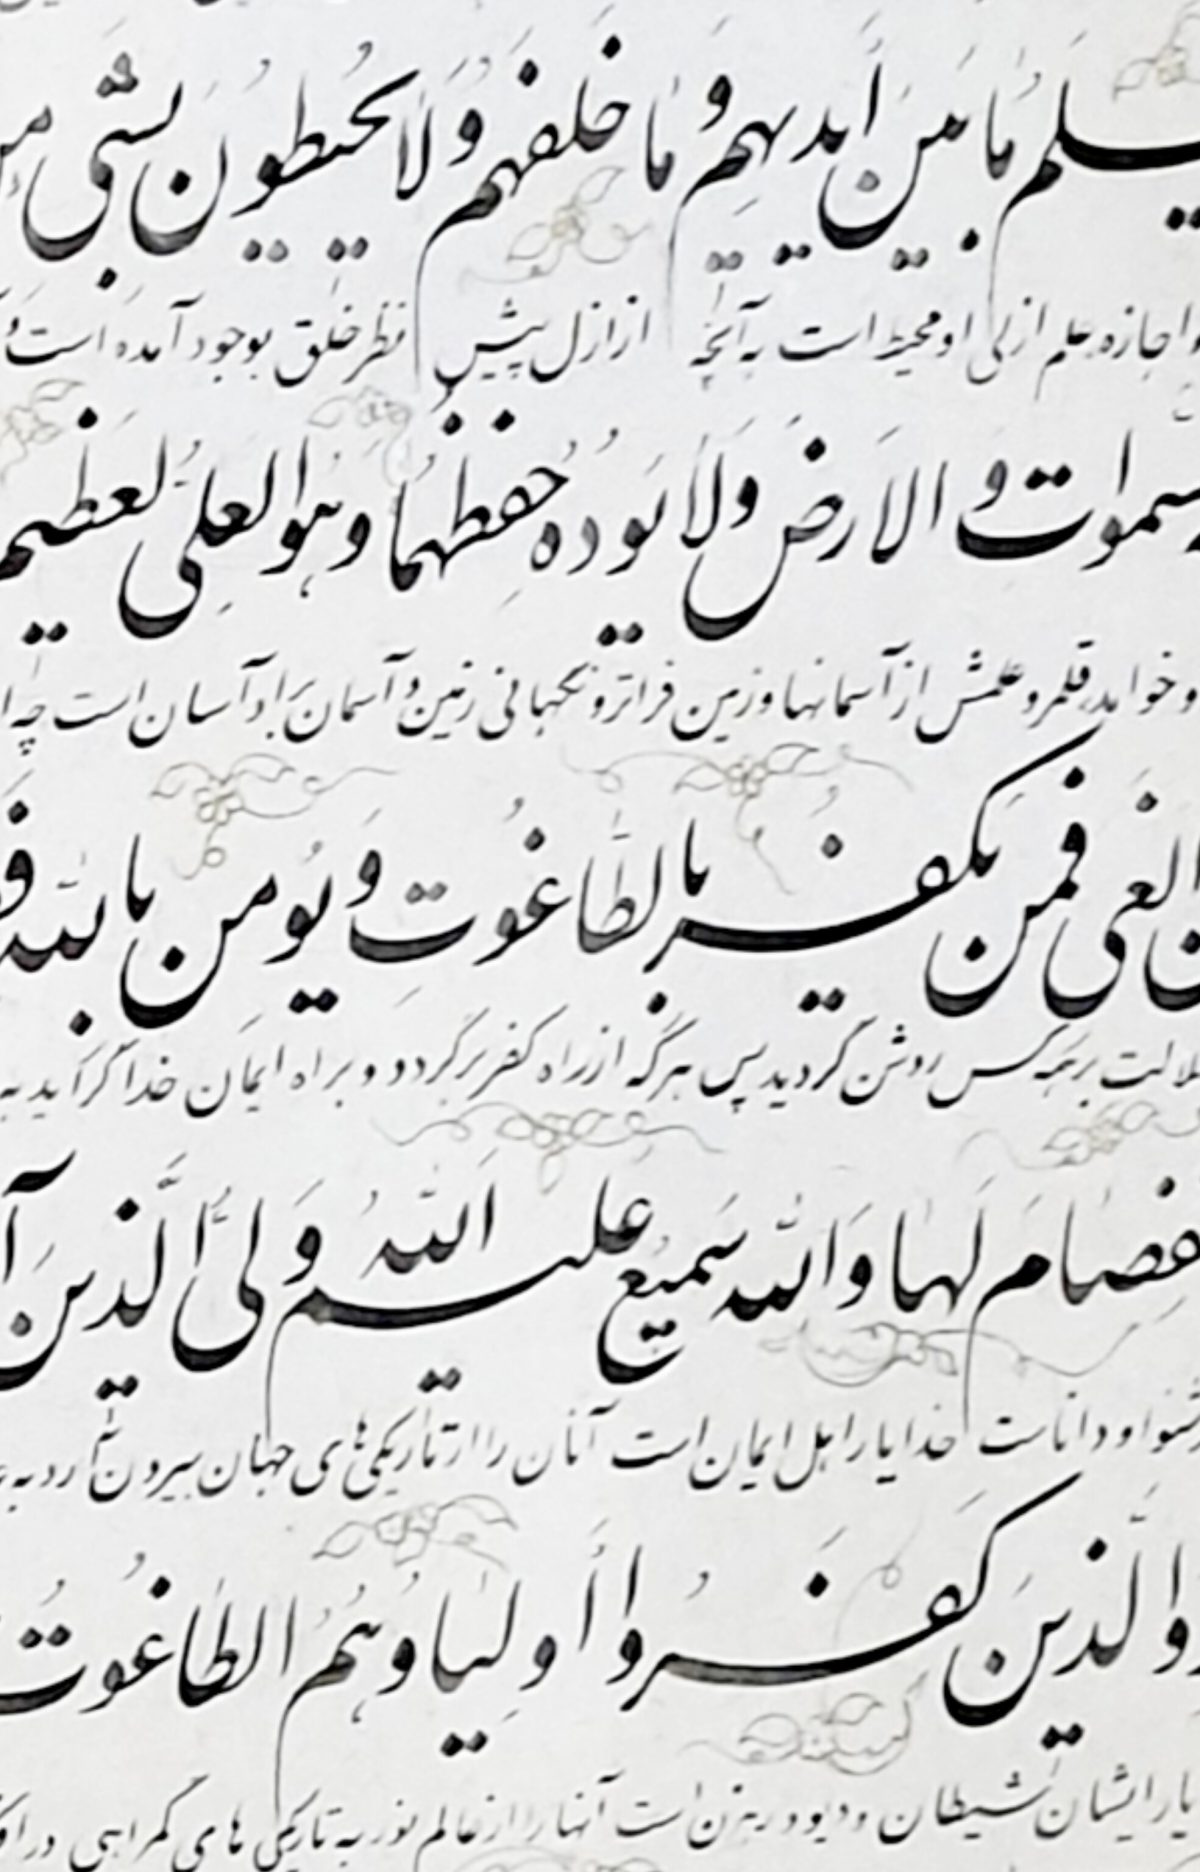 يعلم ما بين أيديهم و ما خلفهم ولا يحيطون بشئ من
و اجازه علم ازلی او محیط است به آنچه از ازل پیش نظر خلق بوجود آمده است و
سموات و الارض ولا يوده حفظهما وهو العلى العظيم
و خواهد قلمرو علمش از آسمانها و زمین فراتر و نگهبانی زمین و آسمان بر او آسان است چه
الغى فمن يكفر بالطاغوت و يومن بالله فقد
ضلالت بر همه کس روشن گردید پس هر که از راه کفر برگردد و براه ایمان خدا گراید به
نفصام لها والله سميع عليم الله ولى الذين آ
شنوا و داناست خدا یار اهل ایمان است آنان را از تاریکی های جهان بیرون آرد به
والذين كفروا أولياوهم الطاغوت
یار ایشان شیطان و دیو رهزن است آنها را از عالم نور به تاریکی های گمراهی در